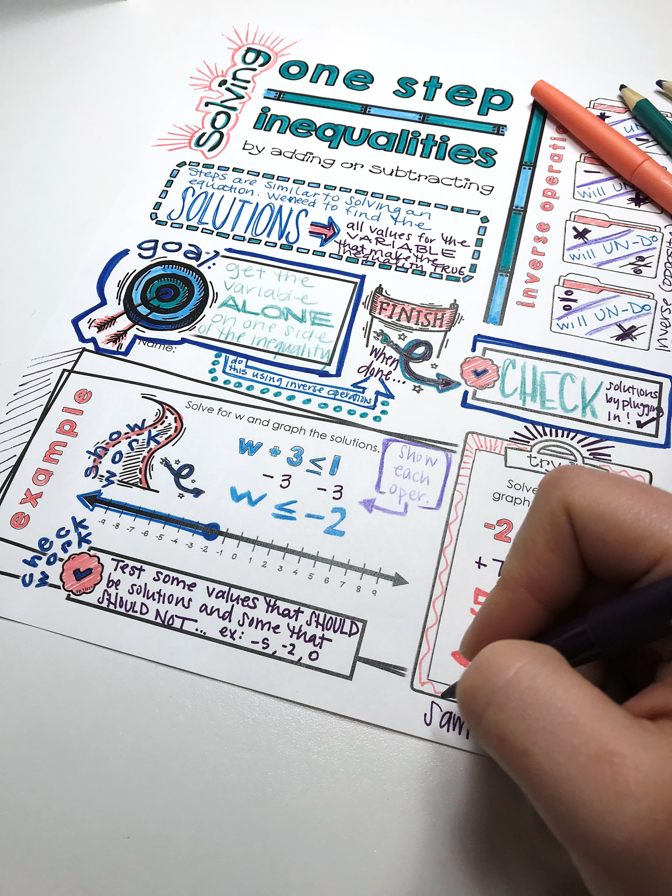 Solving
one step
inequalities
by adding or subtracting
Steps are similar to solving an
equation. We need to find the
SOLUTIONS
all values for the
VARIABLE
that make the
TRUE.
goal:
get the
variable
ALONE
on one side
of the inequality
do
this using inverse operations
Name:
FINISH
When
done...
CHECK
solutions
by plugging
in!
inverse operatio
Will UN-
Will UN-Do
Will UN-Do
example
show
work
Solve for w and graph the solutions.
w + 3 ≤ 1
-3 -3
w ≤ -2
show
each
oper.
-9 -8 -7 -6 -5 -4 -3 -2 -1 0 1 2 3 4 5 6 7 8 9
check
work
Test some values that SHOULD
be solutions and some that
SHOULD NOT... ex: -5, -2, 0
try
Solve
graph
-2
+7